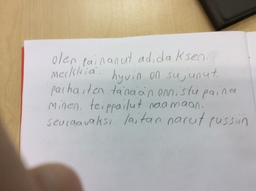 olen painanut adidaksen
merkkiä. hyvin on sujunut.
parhaiten tänään onnistu paina
minen, teippailut naamaan.
seuraavaksi laitan narut pussiin